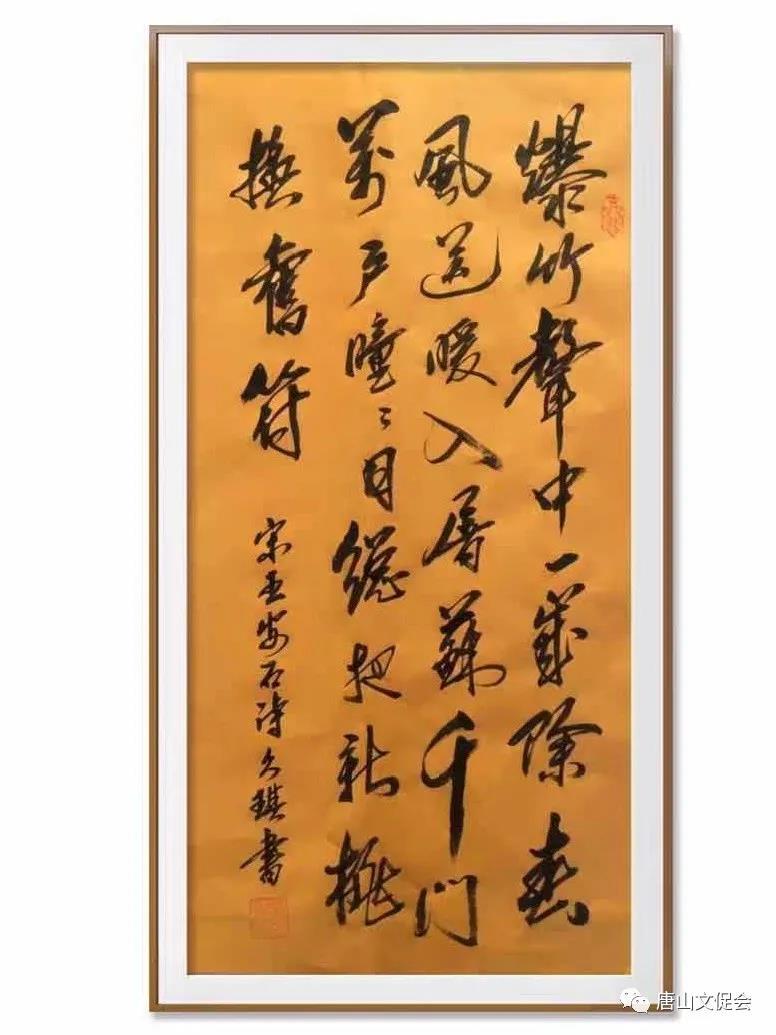 爆竹聲中一歲除春
風送暖入屠蘇千門
萬戶瞳々日總把新桃
換舊符
宋王安石詩久琪書
唐山文促会